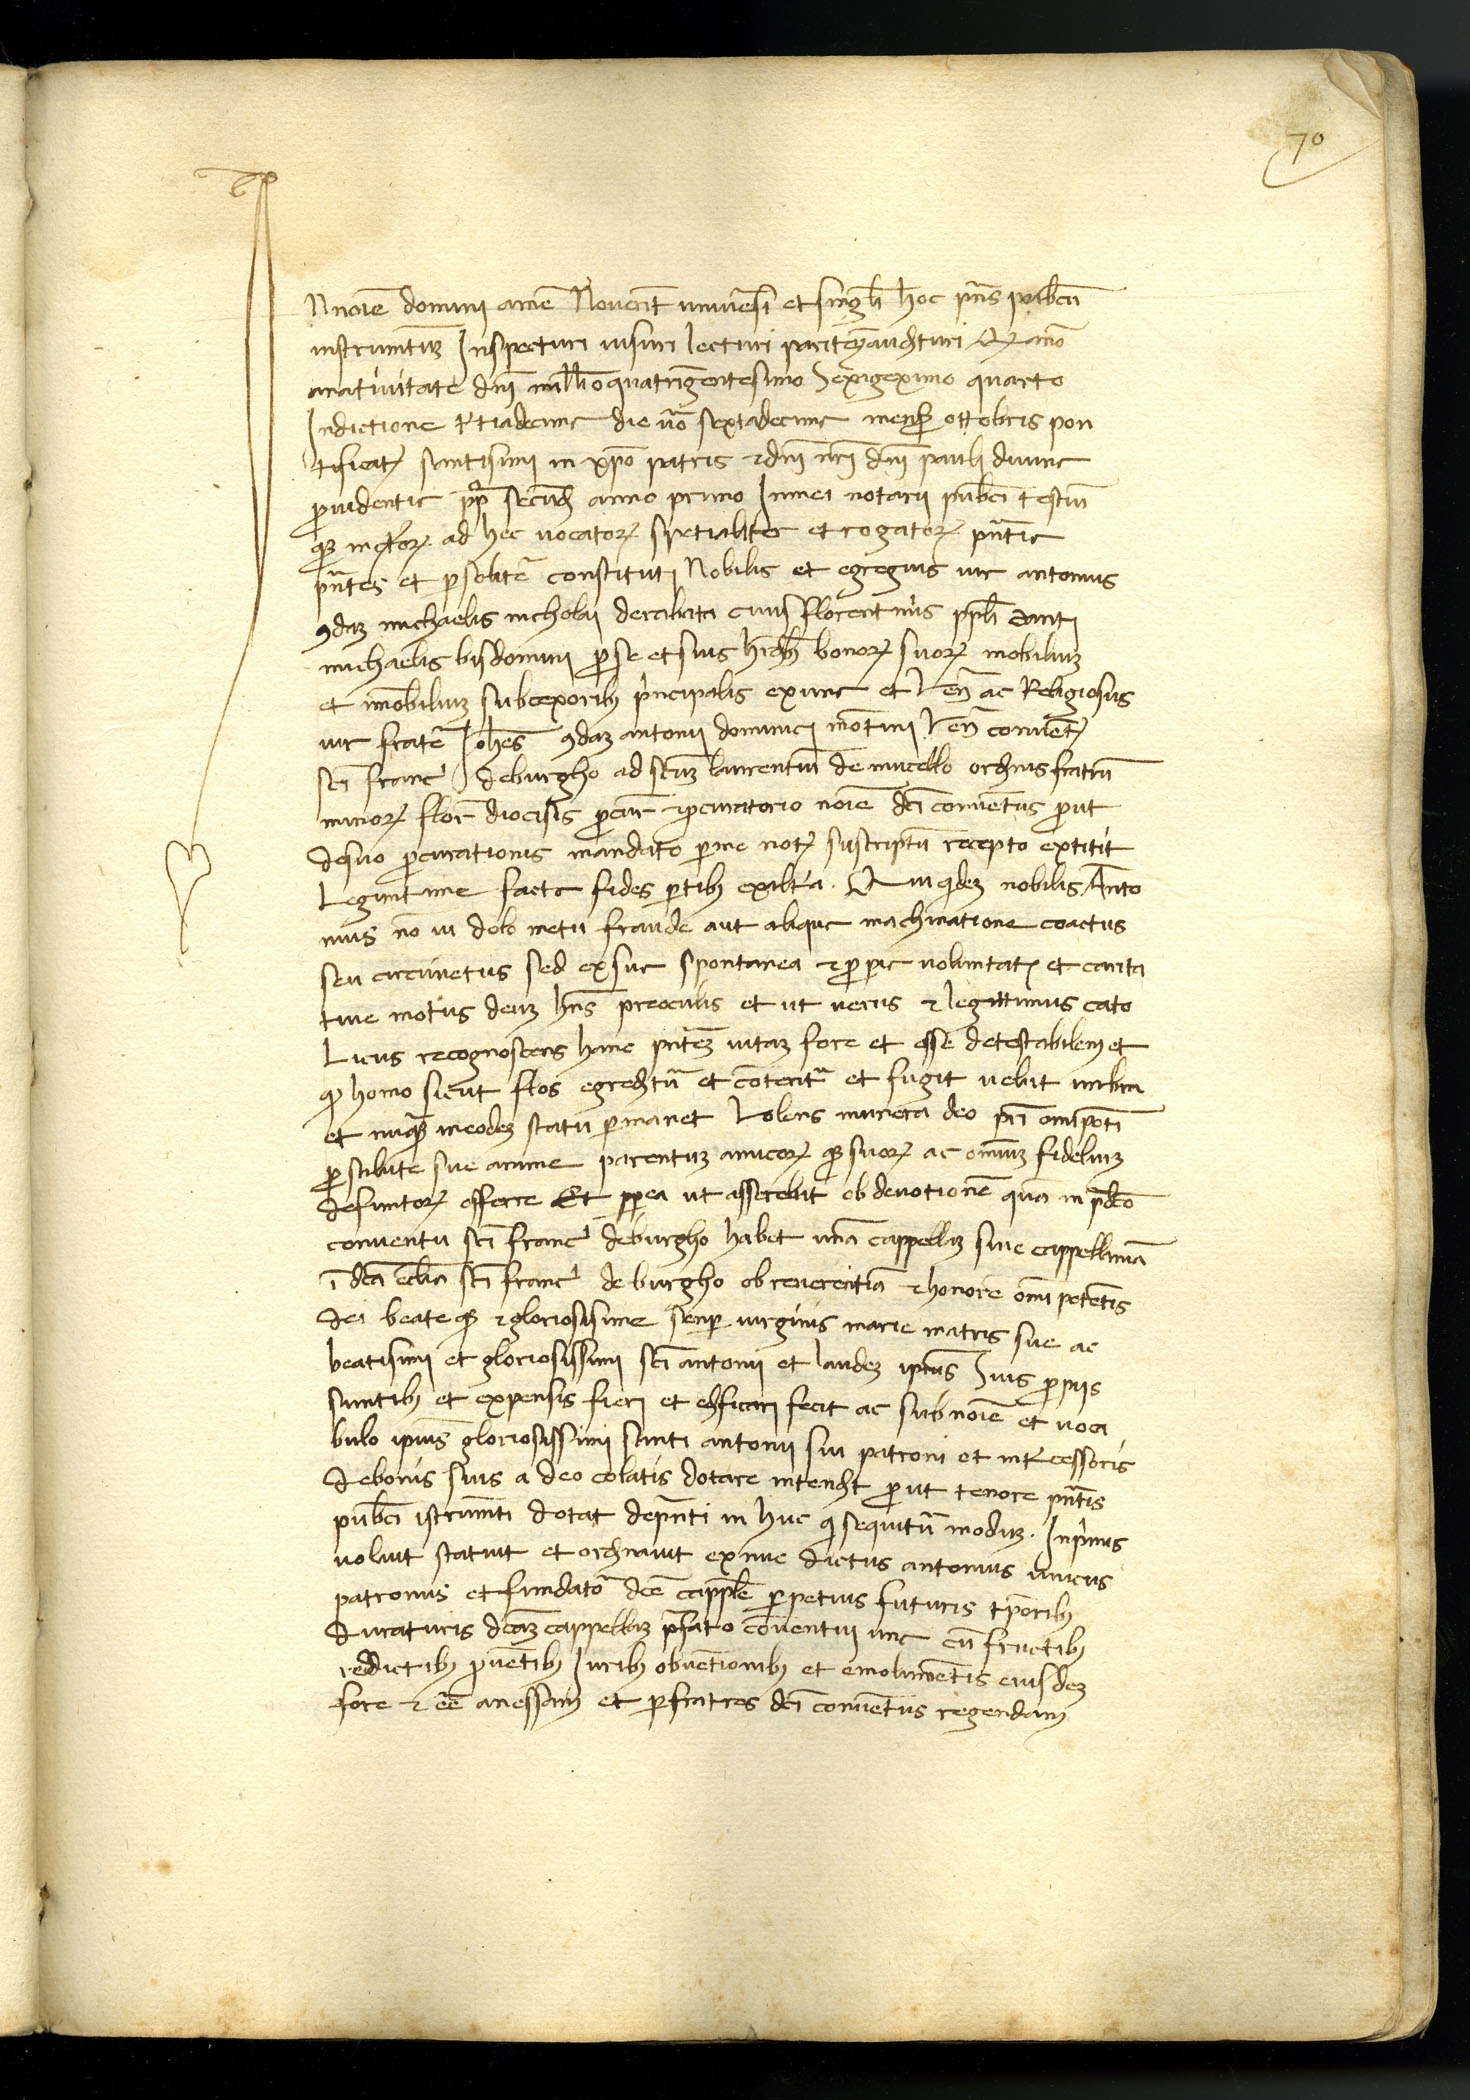 70
N noiē domini amē Noverīt univesi et singłi hoc pñs publicū
instrumtum Inspecturi visuri lecturi pariterq audituri Q anno
anativitate dñi mill̄o quatrigentesimo Sexigeximo quarto
Indictione t'tiadecime die v̄o sextadecime mensis ottobris pon
tificatꝫ santisimi in xp̄o patris ⁊ dñi nr̄i dñi pauli divine
ꝓvidentie pp̄ secūdi anno primo In mei notarii publici testiū
qꝫ infrōꝝ ad hec vocatoꝝ spetialiter et rogatoꝝ pñtie
pñtes et ꝑsolitē constituti Nobilis et egregius vir antonius
ꝯdam michaelis nicholai civis florentinus
michaelis bisdomini ꝑ se et suis bonoꝝ suoꝝ mobilium
et īmobilium principalis ex una et Ven̄ ac Religiosus
vir frater Johes ꝯdam antonii dominici Ven̄ conventꝫ
sc̄i franc̄ deburgho ad sc̄um laurentiū de mucello ordinis fratrū
minoꝝ flor̄ diocisis ꝓcur̄ ⁊ ꝓcuratorio noiē dc̄i conventus ꝓut
desuo ꝓcurationis mandato ꝑ me notꝫ suscriptū recepto extitit
Legiuntime facta fides ꝑtibꝫ exibita. Qui qdem nobilis Anto
nius nō vi dolo metu fraude aut aliqua machinatione coactus
seu circūvetus sed ex sue spontanea ⁊ ꝓprie voluntatis et carita
tive motus deum hn̄s preoculis et ut verus ⁊ legittimus cato
Licus recognoscens hanc pñtem vitam fore et esse detestabilem et
qꝫ homo sicut flos egredit̄ et cōterit̄ et fugit velut umbra
et nuqꝫ ineodem statu ꝑmanet Volens munera deo pr̄i omīpotē
ꝓ salute sue anime parentum amicoꝝ qꝫ suoꝝ ac omium fidelium
defuntoꝝ offerre Et pp̄ea ut asserebat ob devotionē quā in p̄dc̄o
conventu sc̄i franc̄ deburgho habet unā cappellam sive cappellaniā
ī dc̄ā eccl̄ia sc̄i franc̄ de burgho ob reverentiā ⁊ honorē omīpetentis
dei beate qꝫ ⁊ gloriosisime semp̄ virginis marie matris sue ac
beatisimi et gloriosissimi sc̄i antonii et laudem ipius Suis ꝓpiis
suntibꝫ et expensis fieri et edificari fecit ac sub noiē et voca
bulo ipius gloriosissimi santi antonii sui patroni et intꝫcessoris
de bonis suis a deo colatis dotare intendit ꝓut tenore pñtis
publici istrumti dotat depñti in huc q sequitū modum. Inprimis
voluit statuit et ordinavit ex nuc dictus antonius unicus
patronus et fundatō dc̄e capple ꝑpetuis futuris tꝑoribꝫ
duraturis dc̄am cappellam p̄fato conventui unc cū fructibꝫ
reddictibꝫ ꝓvētibꝫ Juribꝫ obventionibꝫ et emolumentis eiusdem
fore ⁊ eē anessam et ꝑ fratres dc̄i conventus regendam